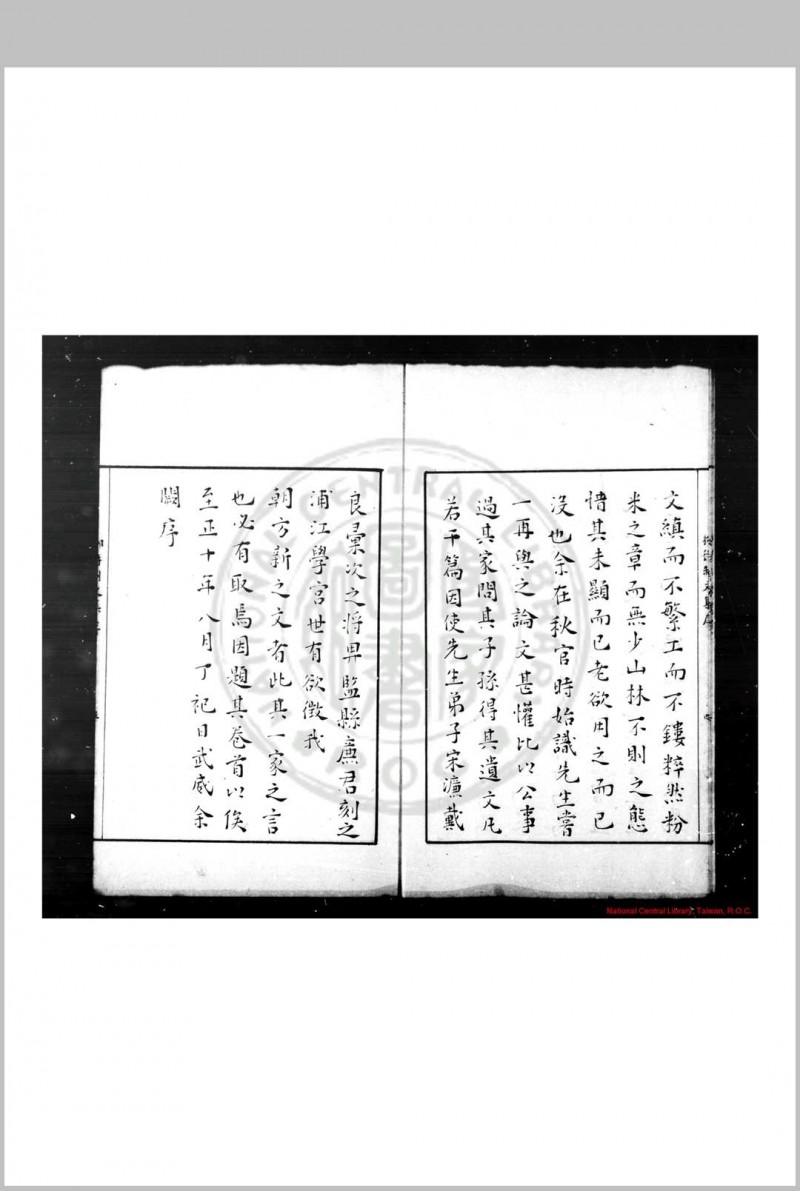 文縝而不繁工而不鏤粹然粉
米之章而無少山林不則之態
惜其未顯而已老欲用之而已
沒也余在秋官時始識先生嘗
一再與之論文甚懽比以公事
過其家問其子孫得其遺文凡
若干篇因使先生弟子宋濂戴
良彙次之將畀監縣廉君刻之
浦江學官世有欲徵我
朝方新之文者此其一家之言
也必有取焉因題其卷首以俟
至正十年八月丁祀日武威余
闕序
National Central Library, Taiwan, R.O.C.